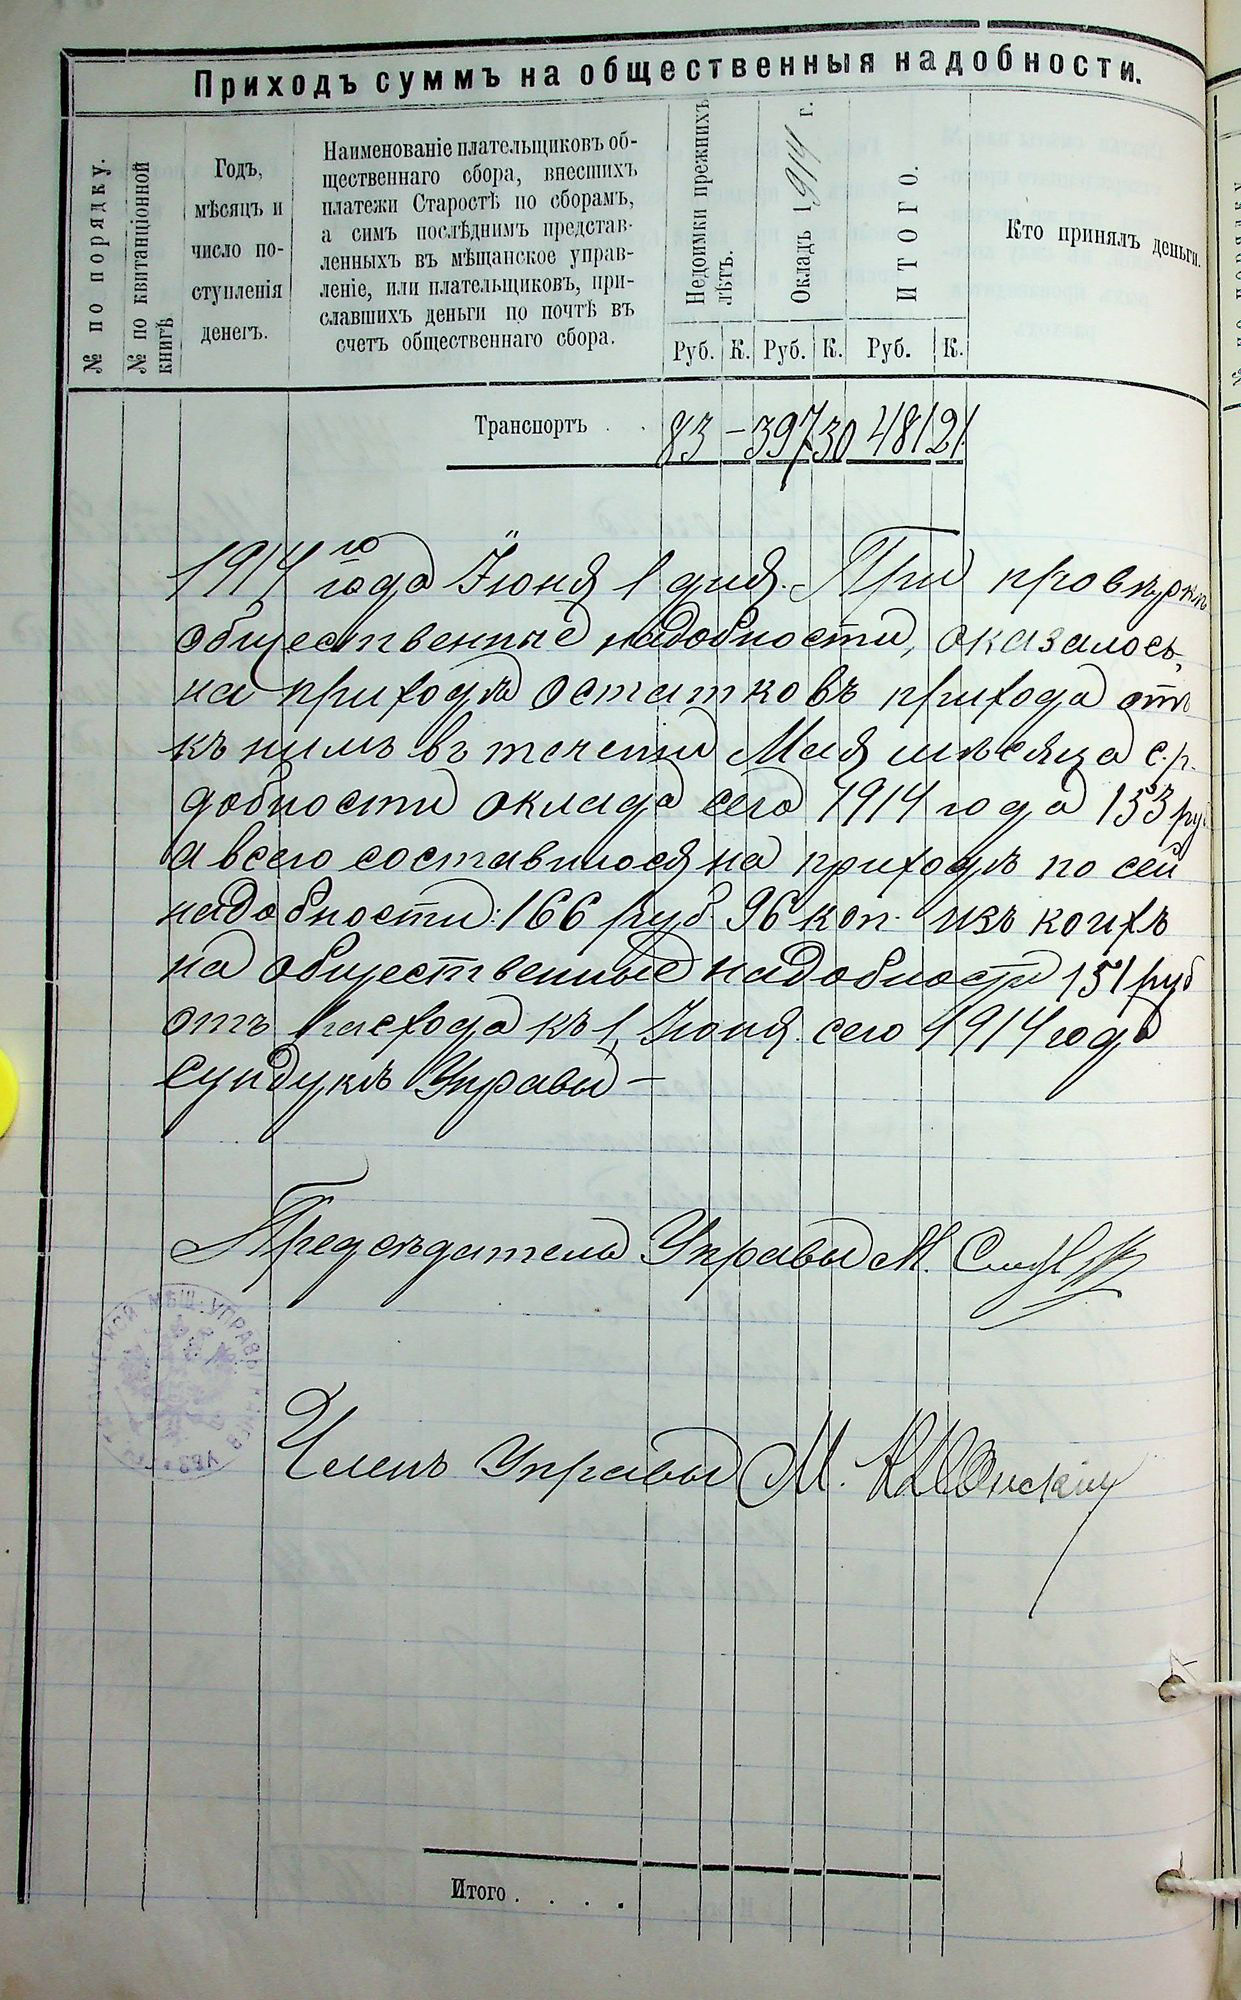 Приходъ суммъ на общественныя надобности.
№ по порядку.
№ по квитанціонной книгѣ
Годъ,
мѣсяцъ и
число по-
ступленія
денегъ.
Наименованіе плательщиковъ об-
щественнаго сбора, внесшихъ
платежи Старостѣ по сборамъ,
а симъ послѣднимъ представ-
ленныхъ въ мѣщанское управ-
леніе, или плательщиковъ, при-
славшихъ деньги по почтѣ въ
счетъ общественнаго сбора.
Недоимки прежнихъ
лѣтъ.
Окладъ 1914 г.
ИТОГО.
Кто принялъ деньги.
Руб. К. Руб. К. Руб. К.
Транспортъ . . 83 – 397 30 481 21
1914го года Іюня 1 дня. При провѣркѣ
общественные надобности, оказалось,
на приходѣ остатковъ прихода отъ
къ нимъ въ течении Мая мѣсяца с.г.
добности оклада сего 1914 года 153 руб
а всего составилося на приходѣ по сей
надобности: 166 руб. 96 коп. изъ коихъ
на общественные надобности 151 руб
отъ расхода къ 1 Іюня сего 1914 года
сундукѣ Управы –
Предсѣдатель Управы М.
Членъ Управы М.
МѢЩ. УПРАВЫ
Итого . . . .